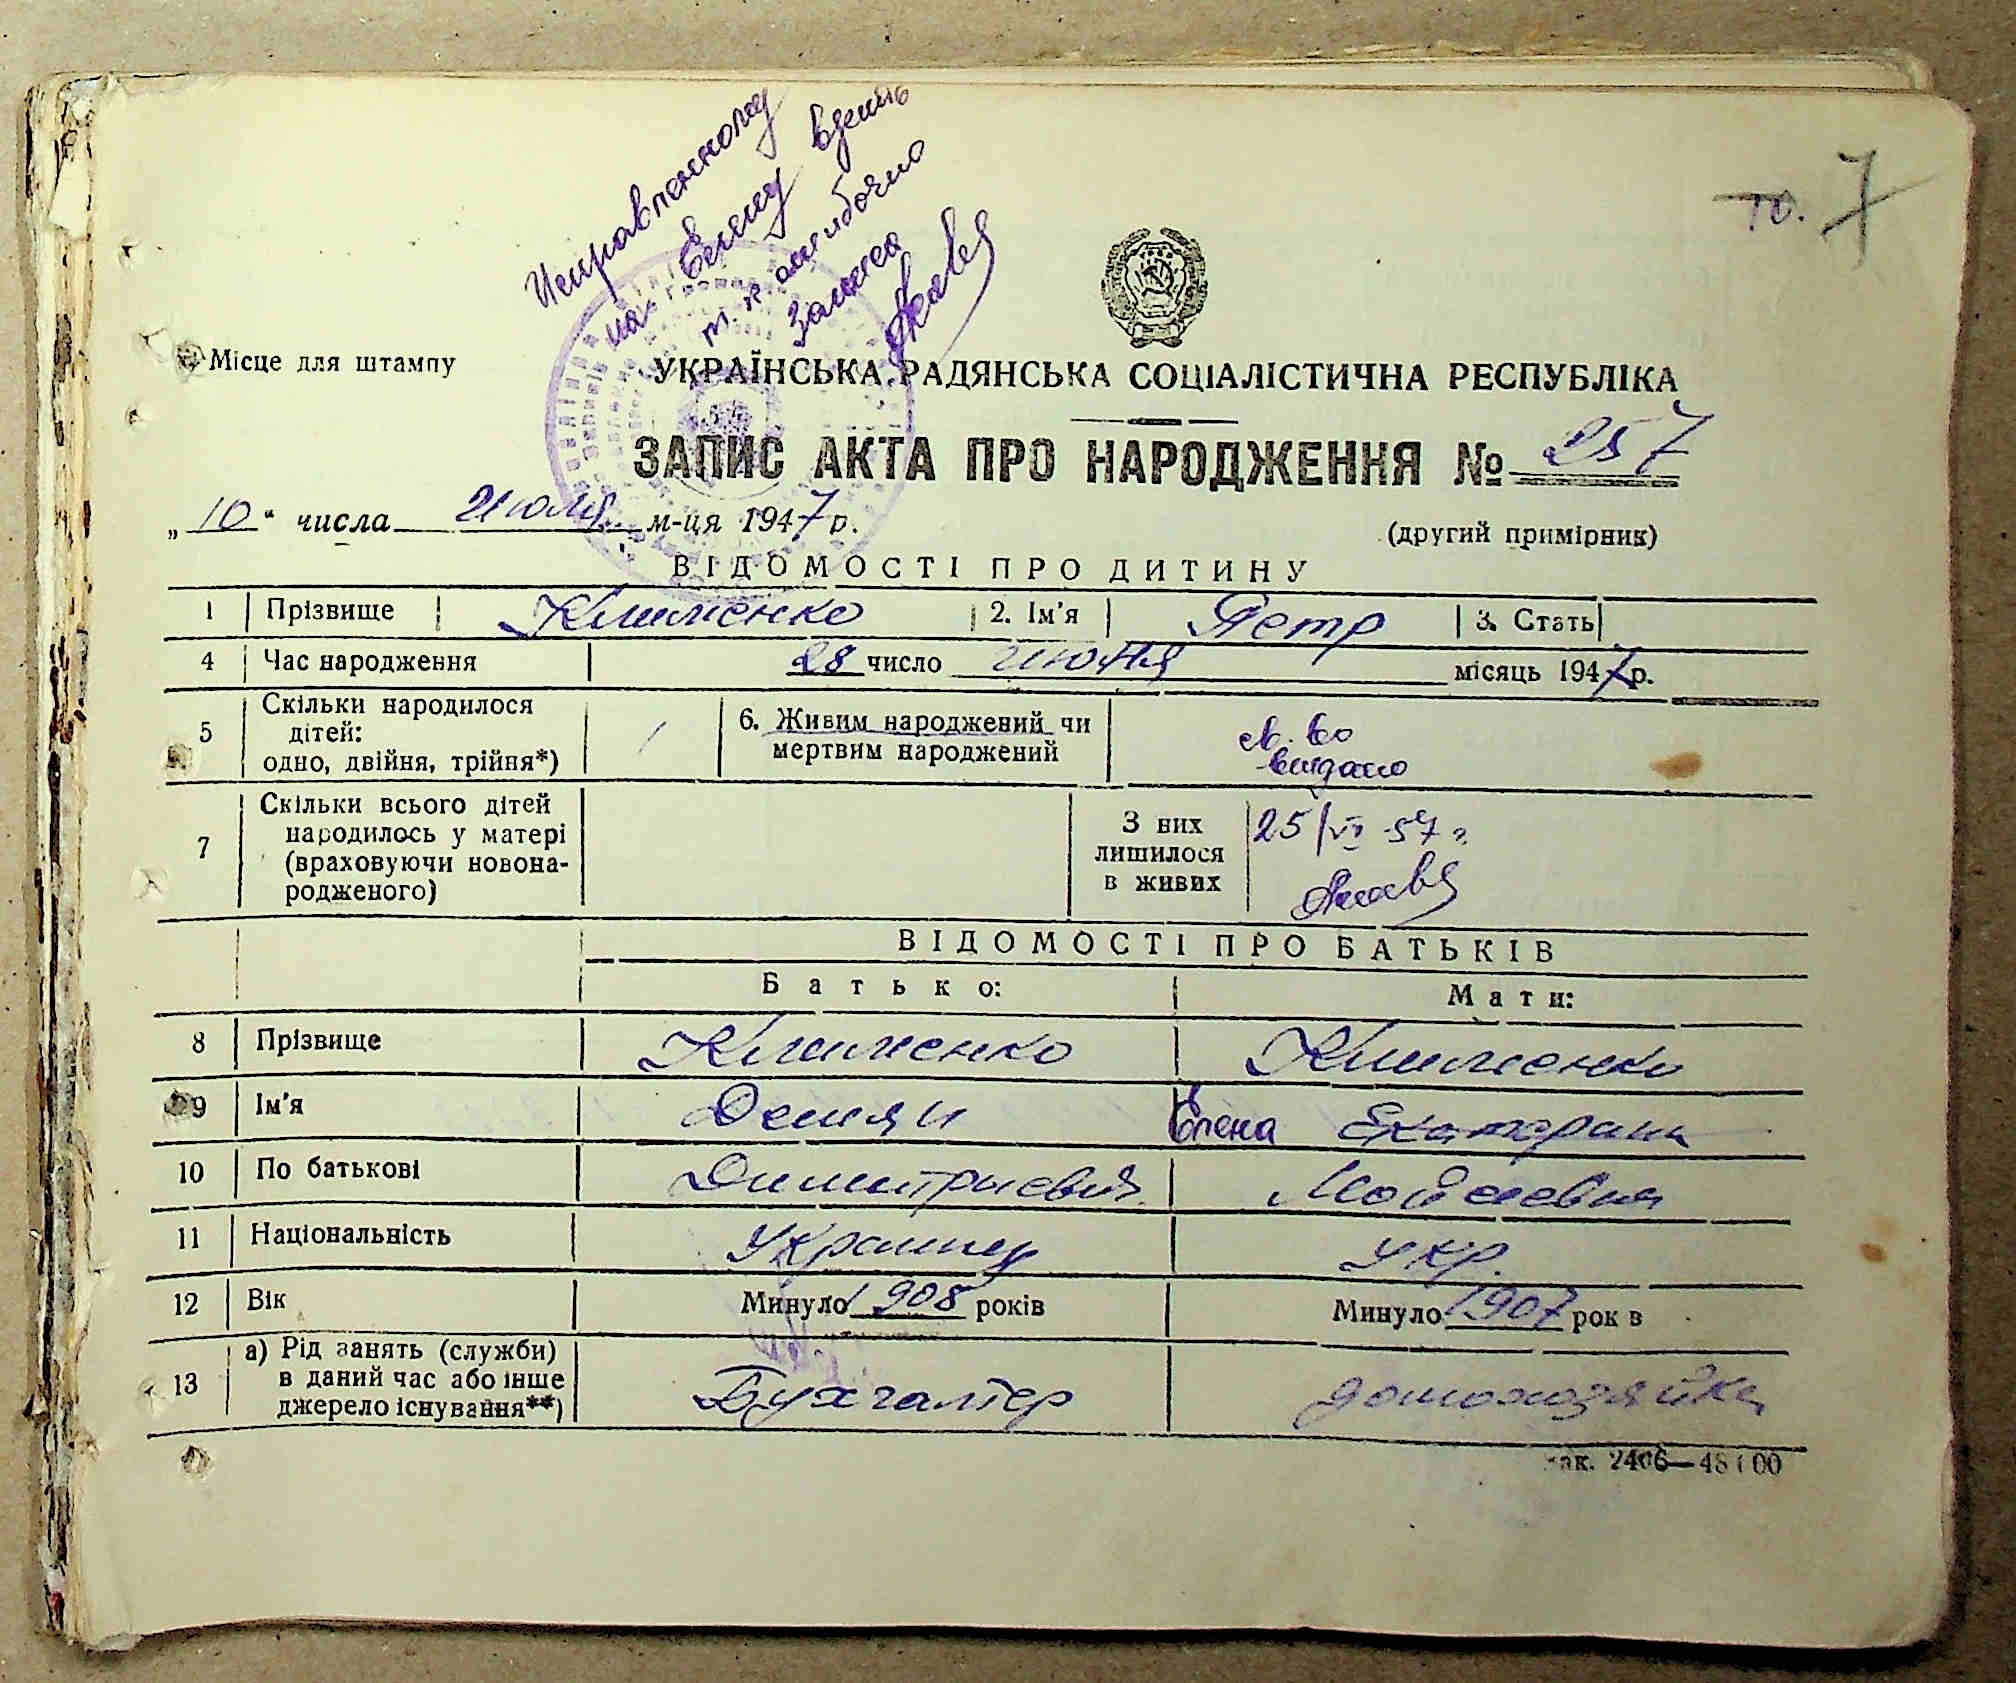 Исправленному
на Елену верить
т.к. ошибочно
7
Місце для штампу
УКРАЇНСЬКА РАДЯНСЬКА СОЦІАЛІСТИЧНА РЕСПУБЛІКА
ЗАПИС АКТА ПРО НАРОДЖЕННЯ № 257
„10“ числа Июля м-ця 1947 р.
(другий примірник)
ВІДОМОСТІ ПРО ДИТИНУ
1 Прізвище Клименко 2. Ім'я Петр 3. Стать
4 Час народження 28 число июня місяць 1947 р.
5 Скільки народилося дітей: одно, двійня, трійня*) 1 6. Живим народжений чи мертвим народжений
7 Скільки всього дітей народилось у матері (враховуючи новонародженого) З них лишилося в живих
ВІДОМОСТІ ПРО БАТЬКІВ
Батько: Мати:
8 Прізвище Клименко Клименко
9 Ім'я Демян Елена Екатерина
10 По батькові Димитриевич Мойсеевна
11 Національність Украинец укр.
12 Вік Минуло 1908 років Минуло 1907 рок в
13 а) Рід занять (служби) в даний час або інше джерело існування**) Бухгалтер домохозяйка
зак. 2406—48100